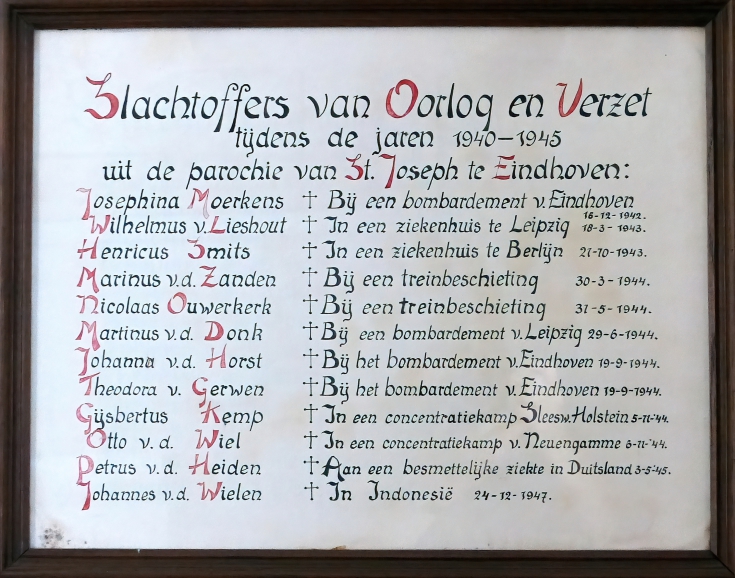 Slachtoffers van Oorlog en Verzet
tijdens de jaren 1940-1945
uit de parochie van St. Joseph te Eindhoven:
Josephina Moerkens † Bij een bombardement v. Eindhoven 16-12-1942.
Wilhelmus v. Lieshout † In een ziekenhuis te Leipzig 18-3-1943.
Henricus Smits † In een ziekenhuis te Berlijn 21-10-1943.
Marinus v.d. Zanden † Bij een treinbeschieting 30-3-1944.
Nicolaas Ouwerkerk † Bij een treinbeschieting 31-5-1944.
Martinus v.d. Donk † Bij een bombardement v. Leipzig 29-6-1944.
Johanna v.d. Horst † Bij het bombardement v. Eindhoven 19-9-1944.
Theodora v. Gerwen † Bij het bombardement v. Eindhoven 19-9-1944.
Gijsbertus Kemp † In een concentratiekamp Sleesw. Holstein 5-11-'44.
Otto v.d. Wiel † In een concentratiekamp v. Neuengamme 6-11-'44.
Petrus v.d. Heiden † Aan een besmettelijke ziekte in Duitsland 3-5-'45.
Johannes v.d. Wielen † In Indonesië 24-12-1947.